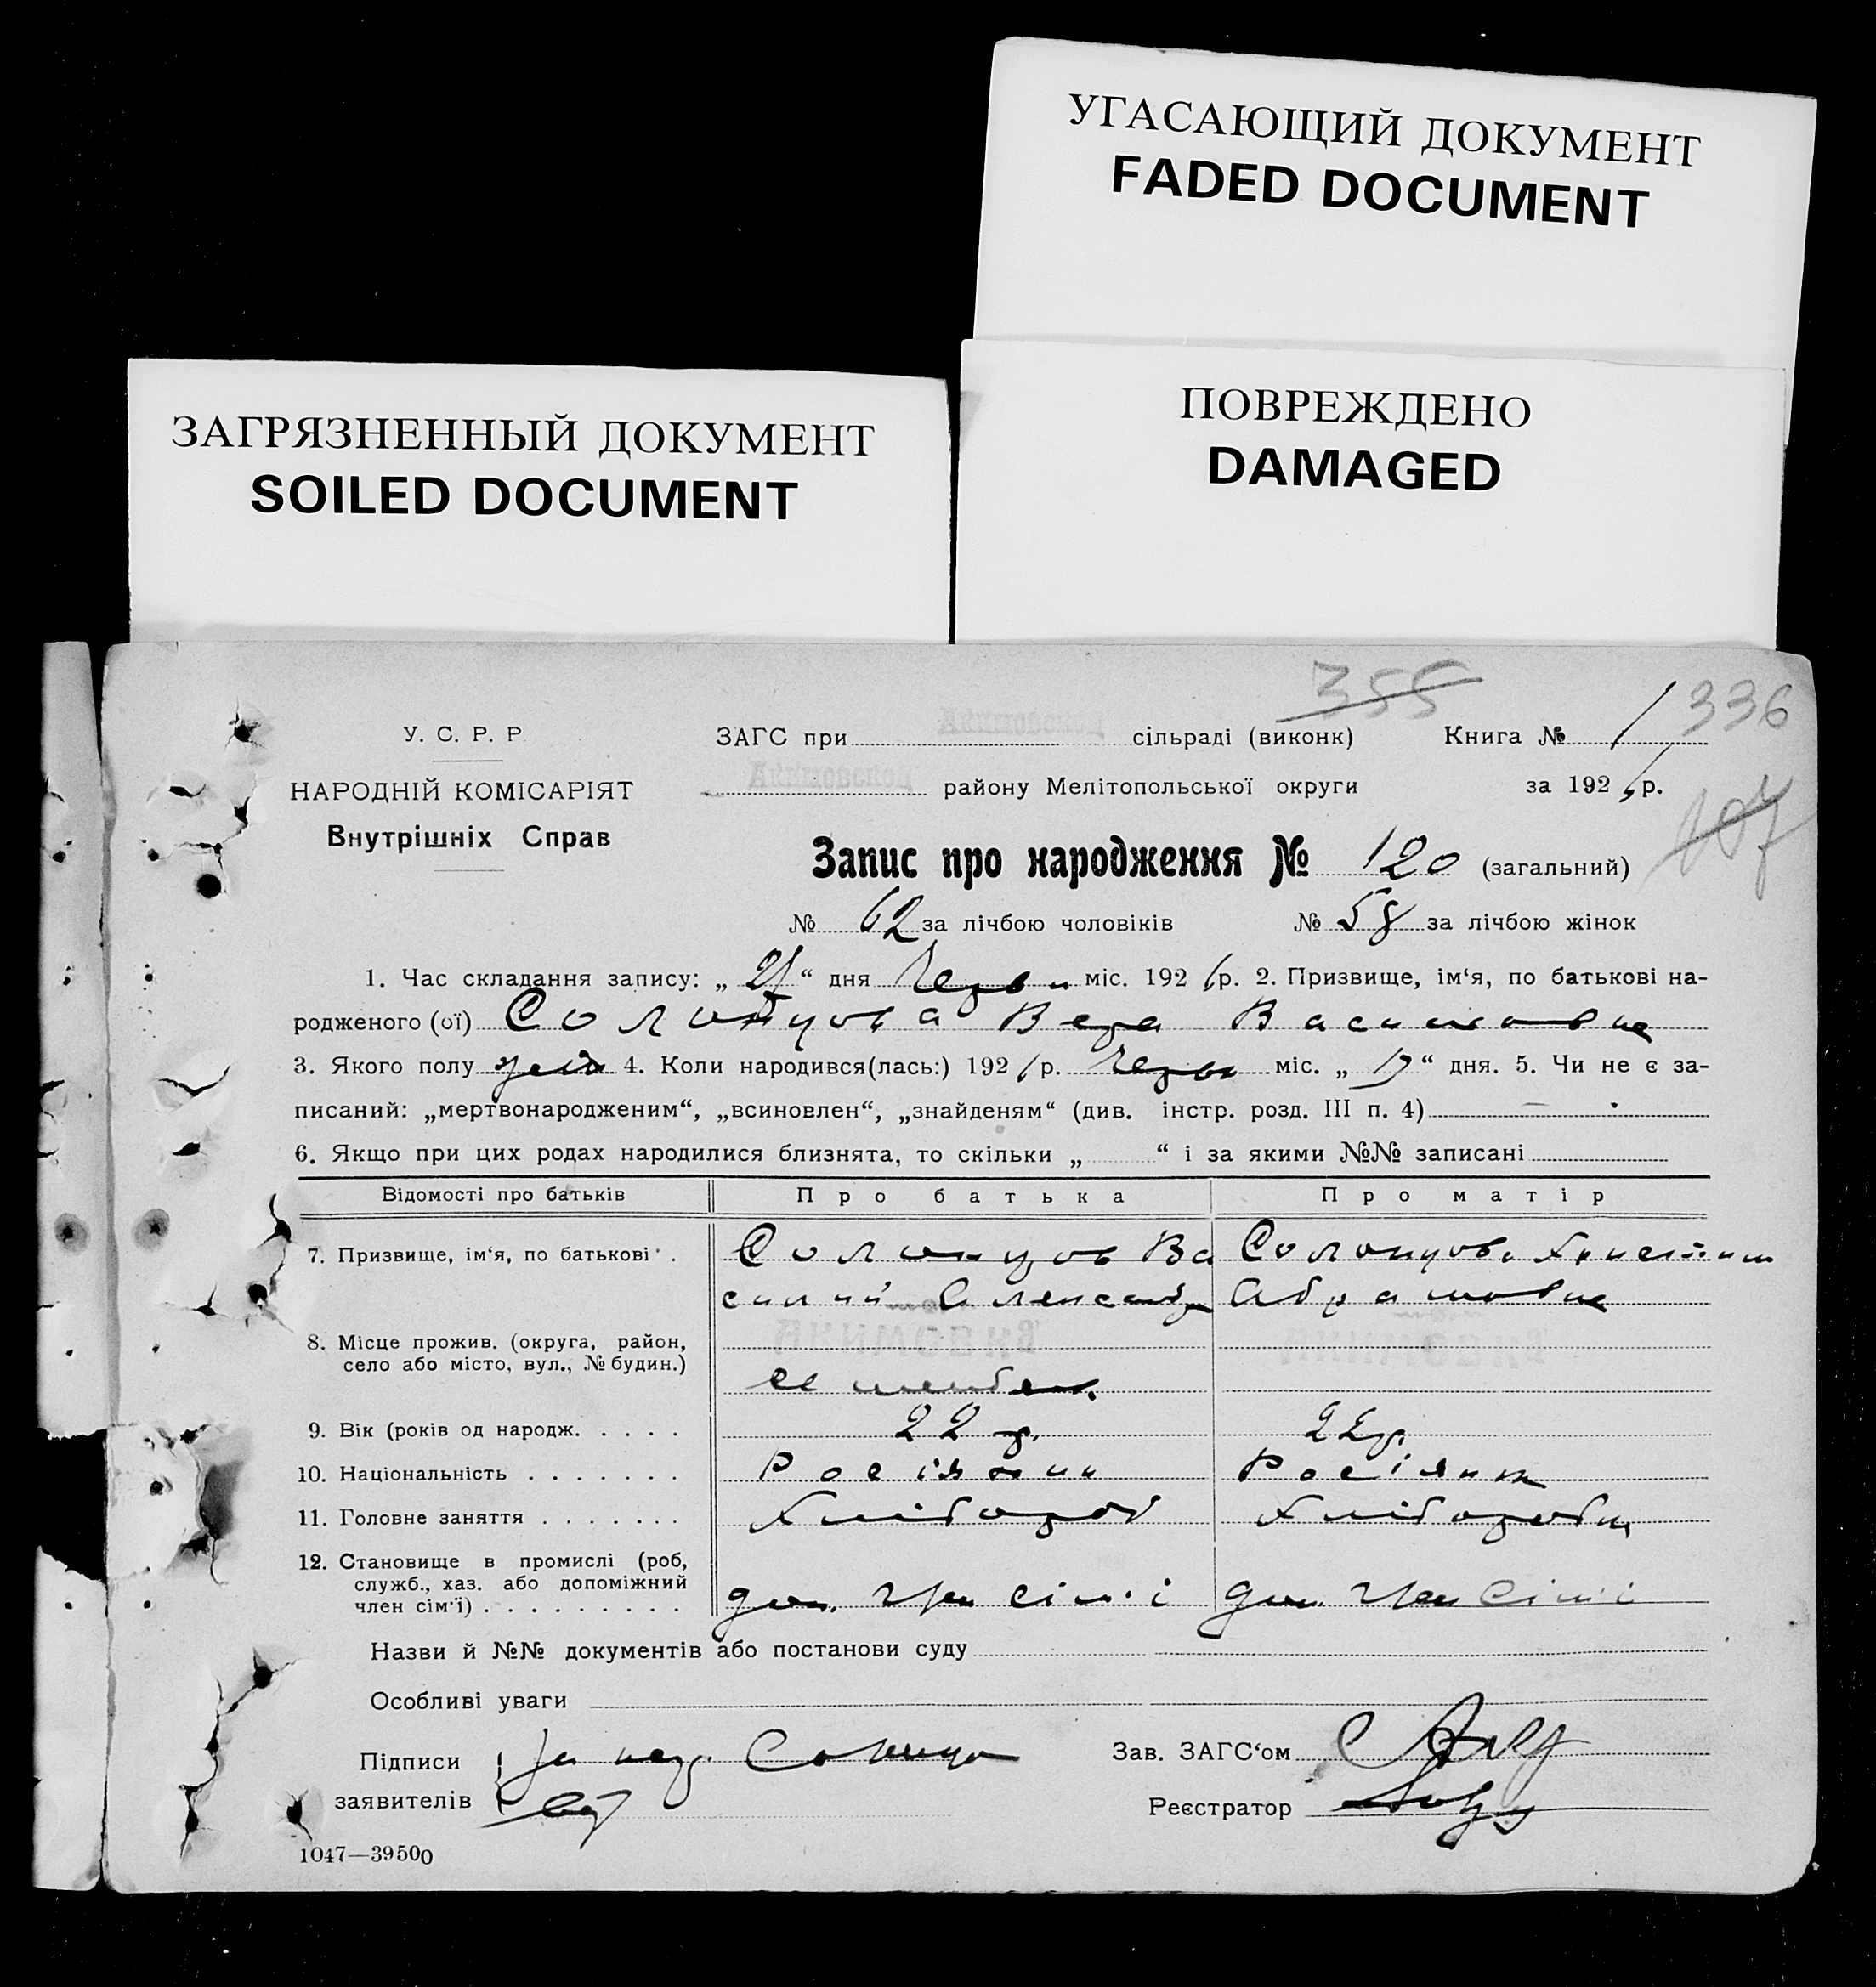 УГАСАЮЩИЙ ДОКУМЕНТ
FADED DOCUMENT
ЗАГРЯЗНЕННЫЙ ДОКУМЕНТ
SOILED DOCUMENT
ПОВРЕЖДЕНО
DAMAGED
355
336
У. С. Р. Р
НАРОДНІЙ КОМІСАРІЯТ
Внутрішніх Справ
ЗАГС при сільраді (виконк) Книга № 1
району Мелітопольської округи за 192 р.
107
Запис про народження № 120 (загальний)
№ 62 за лічбою чоловіків № 58 за лічбою жінок
1. Час складання запису: „ “ дня Червн міс. 192 р. 2. Призвище, ім‘я, по батькові на-
родженого (ої) Солонцова Вера Васильовна
3. Якого полу жен 4. Коли народився(лась:) 192 р. Червн міс. „ “ дня. 5. Чи не є за-
писаний: „мертвонародженим“, „всиновлен“, „знайденям“ (див. інстр. розд. III п. 4) —
6. Якщо при цих родах народилися близнята, то скільки „ “ і за якими №№ записані
Відомості про батьків Про батька Про матір
7. Призвище, ім‘я, по батькові . Солонцов Ва Солонцова Христин
силий Александр Абрамовна
8. Місце прожив. (округа, район,
село або місто, вул., № будин.)
9. Вік (років од народж. . . . . 22 р. 22 р.
10. Національність . . . . . . . Росіянин Росіянк
11. Головне заняття . . . . . . . Хлібороб Хліборобк
12. Становище в промислі (роб,
служб., хаз. або допоміжний
член сім‘ї) . . . . . . . . . доп. член сім'ї доп. член сім'ї
Назви й №№ документів або постанови суду
Особливі уваги
Підписи
заявителів
Зав. ЗАГС‘ом
Реєстратор
1047—39500